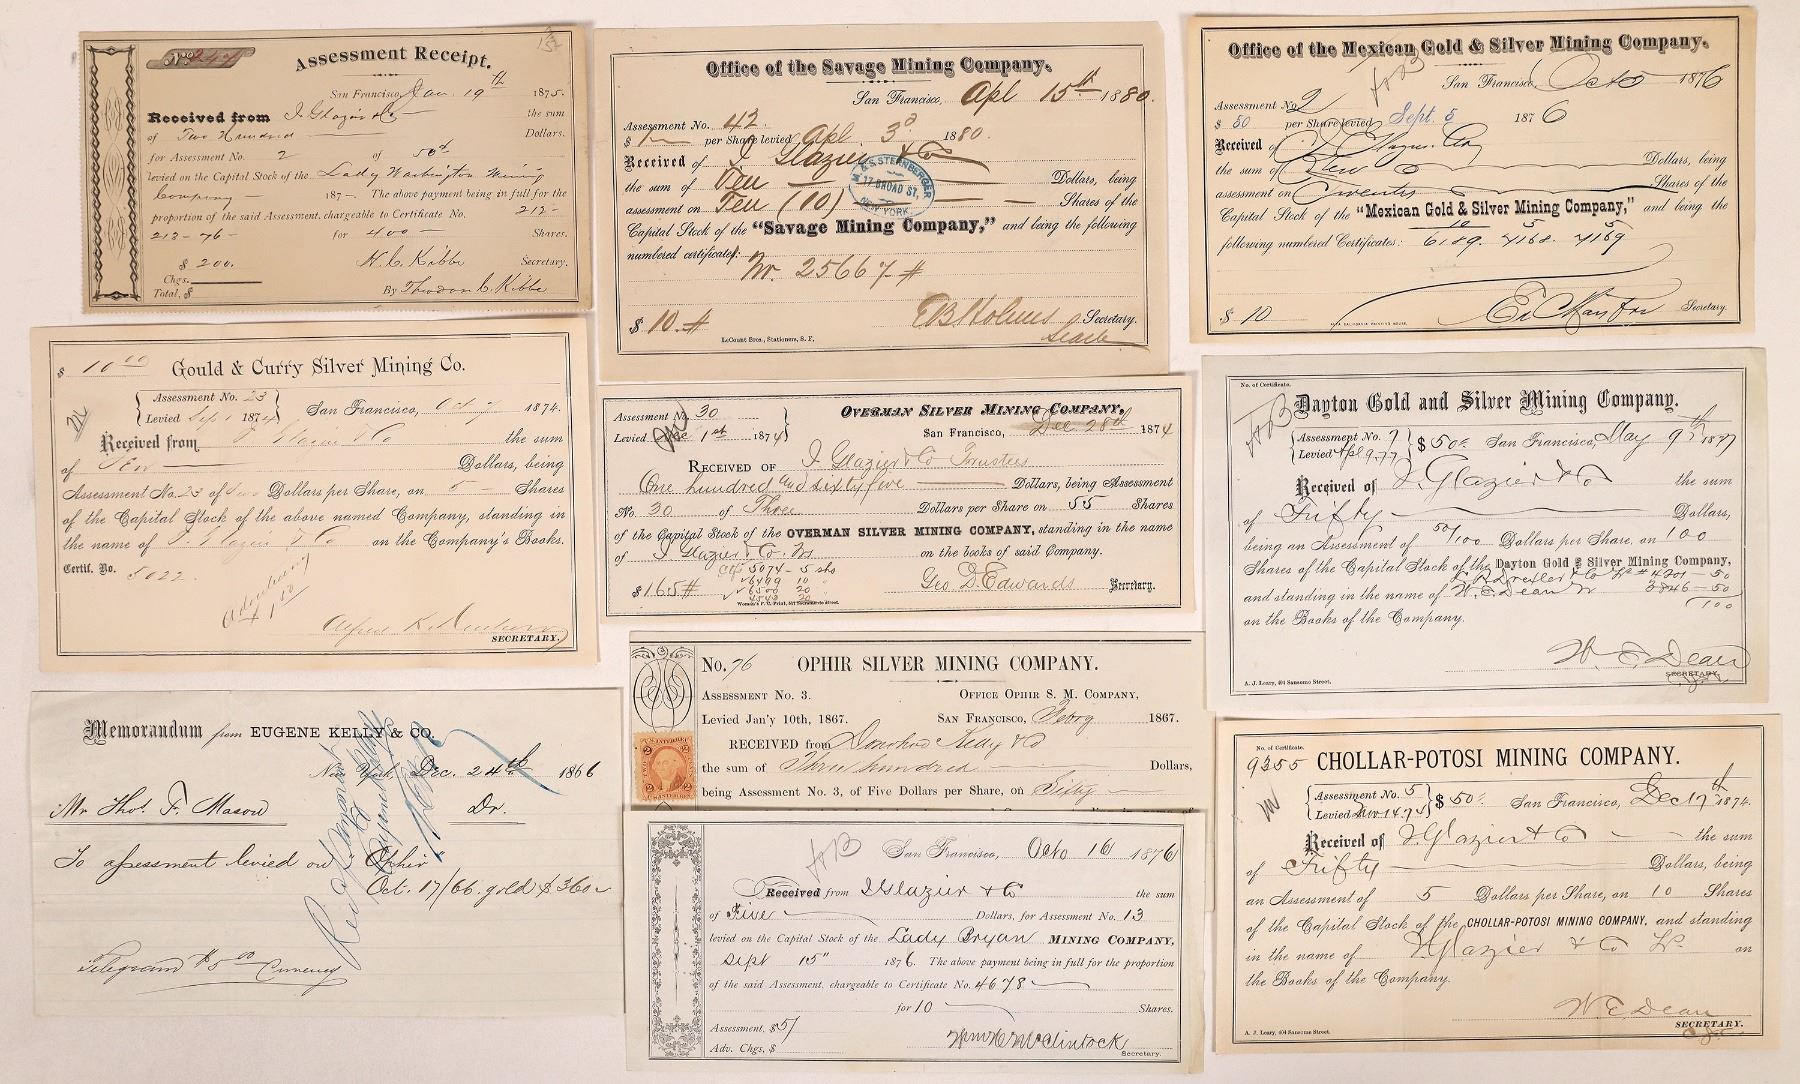 No. 247
Assessment Receipt.
San Francisco, Jan. 19th 1875.
Received from I Glazier & Co the sum
of Two Hundred Dollars.
for Assessment No. 2 of 50cts
levied on the Capital Stock of the Lady Washington Mining
Company 187 The above payment being in full for the
proportion of the said Assessment, chargeable to Certificate No. 212-
213-76- for 400 Shares.
$ 200. H. C. Kibbe Secretary.
Chgs.
Total, $ By Theodore C. Kibbe
Office of the Savage Mining Company.
San Francisco, Apl 15th 1880.
Assessment No. 42.
$ 1 per Share levied Apl. 3d 1880.
Received of I Glazier & Co
the sum of Ten Dollars, being
assessment on Ten (10) Shares of the
Capital Stock of the "Savage Mining Company," and being the following
numbered certificates: No. 25667
$ 10. E B Holmes Secretary.
LeCount Bros., Stationers, S. F.
M. & S. STERNBERGER
17 BROAD ST,
NEW YORK.
Office of the Mexican Gold & Silver Mining Company.
San Francisco, Oct 5 1876
Assessment No. 2
$ 50 per Share levied Sept. 5 1876
Received of I Glazier & Co
the sum of Ten Dollars, being
assessment on Twenty Shares of the
Capital Stock of the "Mexican Gold & Silver Mining Company," and being the
following numbered Certificates: 10 5 5
6189. 4168. 4169
$ 10 Secretary.
$ 10 00
Gould & Curry Silver Mining Co.
Assessment No. 23
Levied Sep 1 1874
San Francisco, Oct 7 1874.
Received from I Glazier & Co the sum
of Ten Dollars, being
Assessment No. 23 of two Dollars per Share, on 5 Shares
of the Capital Stock of the above named Company, standing in
the name of I Glazier & Co on the Company's Books.
Certif. No. 5022.
Advertising
$1.00
SECRETARY.
OVERMAN SILVER MINING COMPANY,
Assessment No. 30
Levied Dec 1st 1874
San Francisco, Dec 28th 1874
RECEIVED OF I Glazier & Co Trustees
One hundred and sixty five Dollars, being Assessment
No. 30 of Three Dollars per Share on 55 Shares
of the Capital Stock of the OVERMAN SILVER MINING COMPANY, standing in the name
of I Glazier & Co. Trs on the books of said Company.
Ctf 5074 - 5 shs
6469 10
6500 20
4543 20
$ 165 Geo D. Edwards Secretary.
Women's P. U. Print, 537 Sacramento street.
No. of Certificate.
Dayton Gold and Silver Mining Company.
Assessment No. 7
Levied Apl 9. 77
$ 50c San Francisco, May 9th 1877
Received of I. Glazier & Co the sum
of Fifty Dollars,
being an Assessment of 50/100 Dollars per Share, on 100
Shares of the Capital Stock of the Dayton Gold & Silver Mining Company,
4201 - 50
and standing in the name of W. E. Dean Tr 3846 - 50
on the Books of the Company. 100
W. E. Dean
SECRETARY.
A. J. Leary, 401 Sansome Street.
No. 76 OPHIR SILVER MINING COMPANY.
ASSESSMENT No. 3. OFFICE OPHIR S. M. COMPANY,
Levied Jan'y 10th, 1867. SAN FRANCISCO, Febry 1867.
RECEIVED from Donohoe Kelly & Co
the sum of Three hundred Dollars,
being Assessment No. 3, of Five Dollars per Share, on Sixty
Memorandum from EUGENE KELLY & CO.
New York, Dec. 24th 1866
Mr Thos. F. Mason Dr.
To assessment levied on "Ophir"
Oct. 17/66 gold $360
Telegram $5 00 Currency
San Francisco, Oct 16 1876
Received from I Glazier & Co the sum
of Five Dollars, for Assessment No. 13
levied on the Capital Stock of the Lady Bryan MINING COMPANY,
Sept 15" 1876. The above payment being in full for the proportion
of the said Assessment, chargeable to Certificate No. 4678
for 10 Shares.
Assessment, $ 5/
Adv. Chgs, $ Wm H McClintock
Secretary.
No. of Certificate.
9355 CHOLLAR-POTOSI MINING COMPANY.
Assessment No. 5
Levied Nov. 14. 74
$ 50. San Francisco, Dec 17th 1874.
Received of I. Glazier & Co the sum
of Fifty Dollars, being
an Assessment of 5 Dollars per Share, on 10 Shares
of the Capital Stock of the CHOLLAR-POTOSI MINING COMPANY, and standing
in the name of I. Glazier & Co Trs on
the Books of the Company.
W E Dean
SECRETARY.
A. J. Leary, 404 Sansome Street.